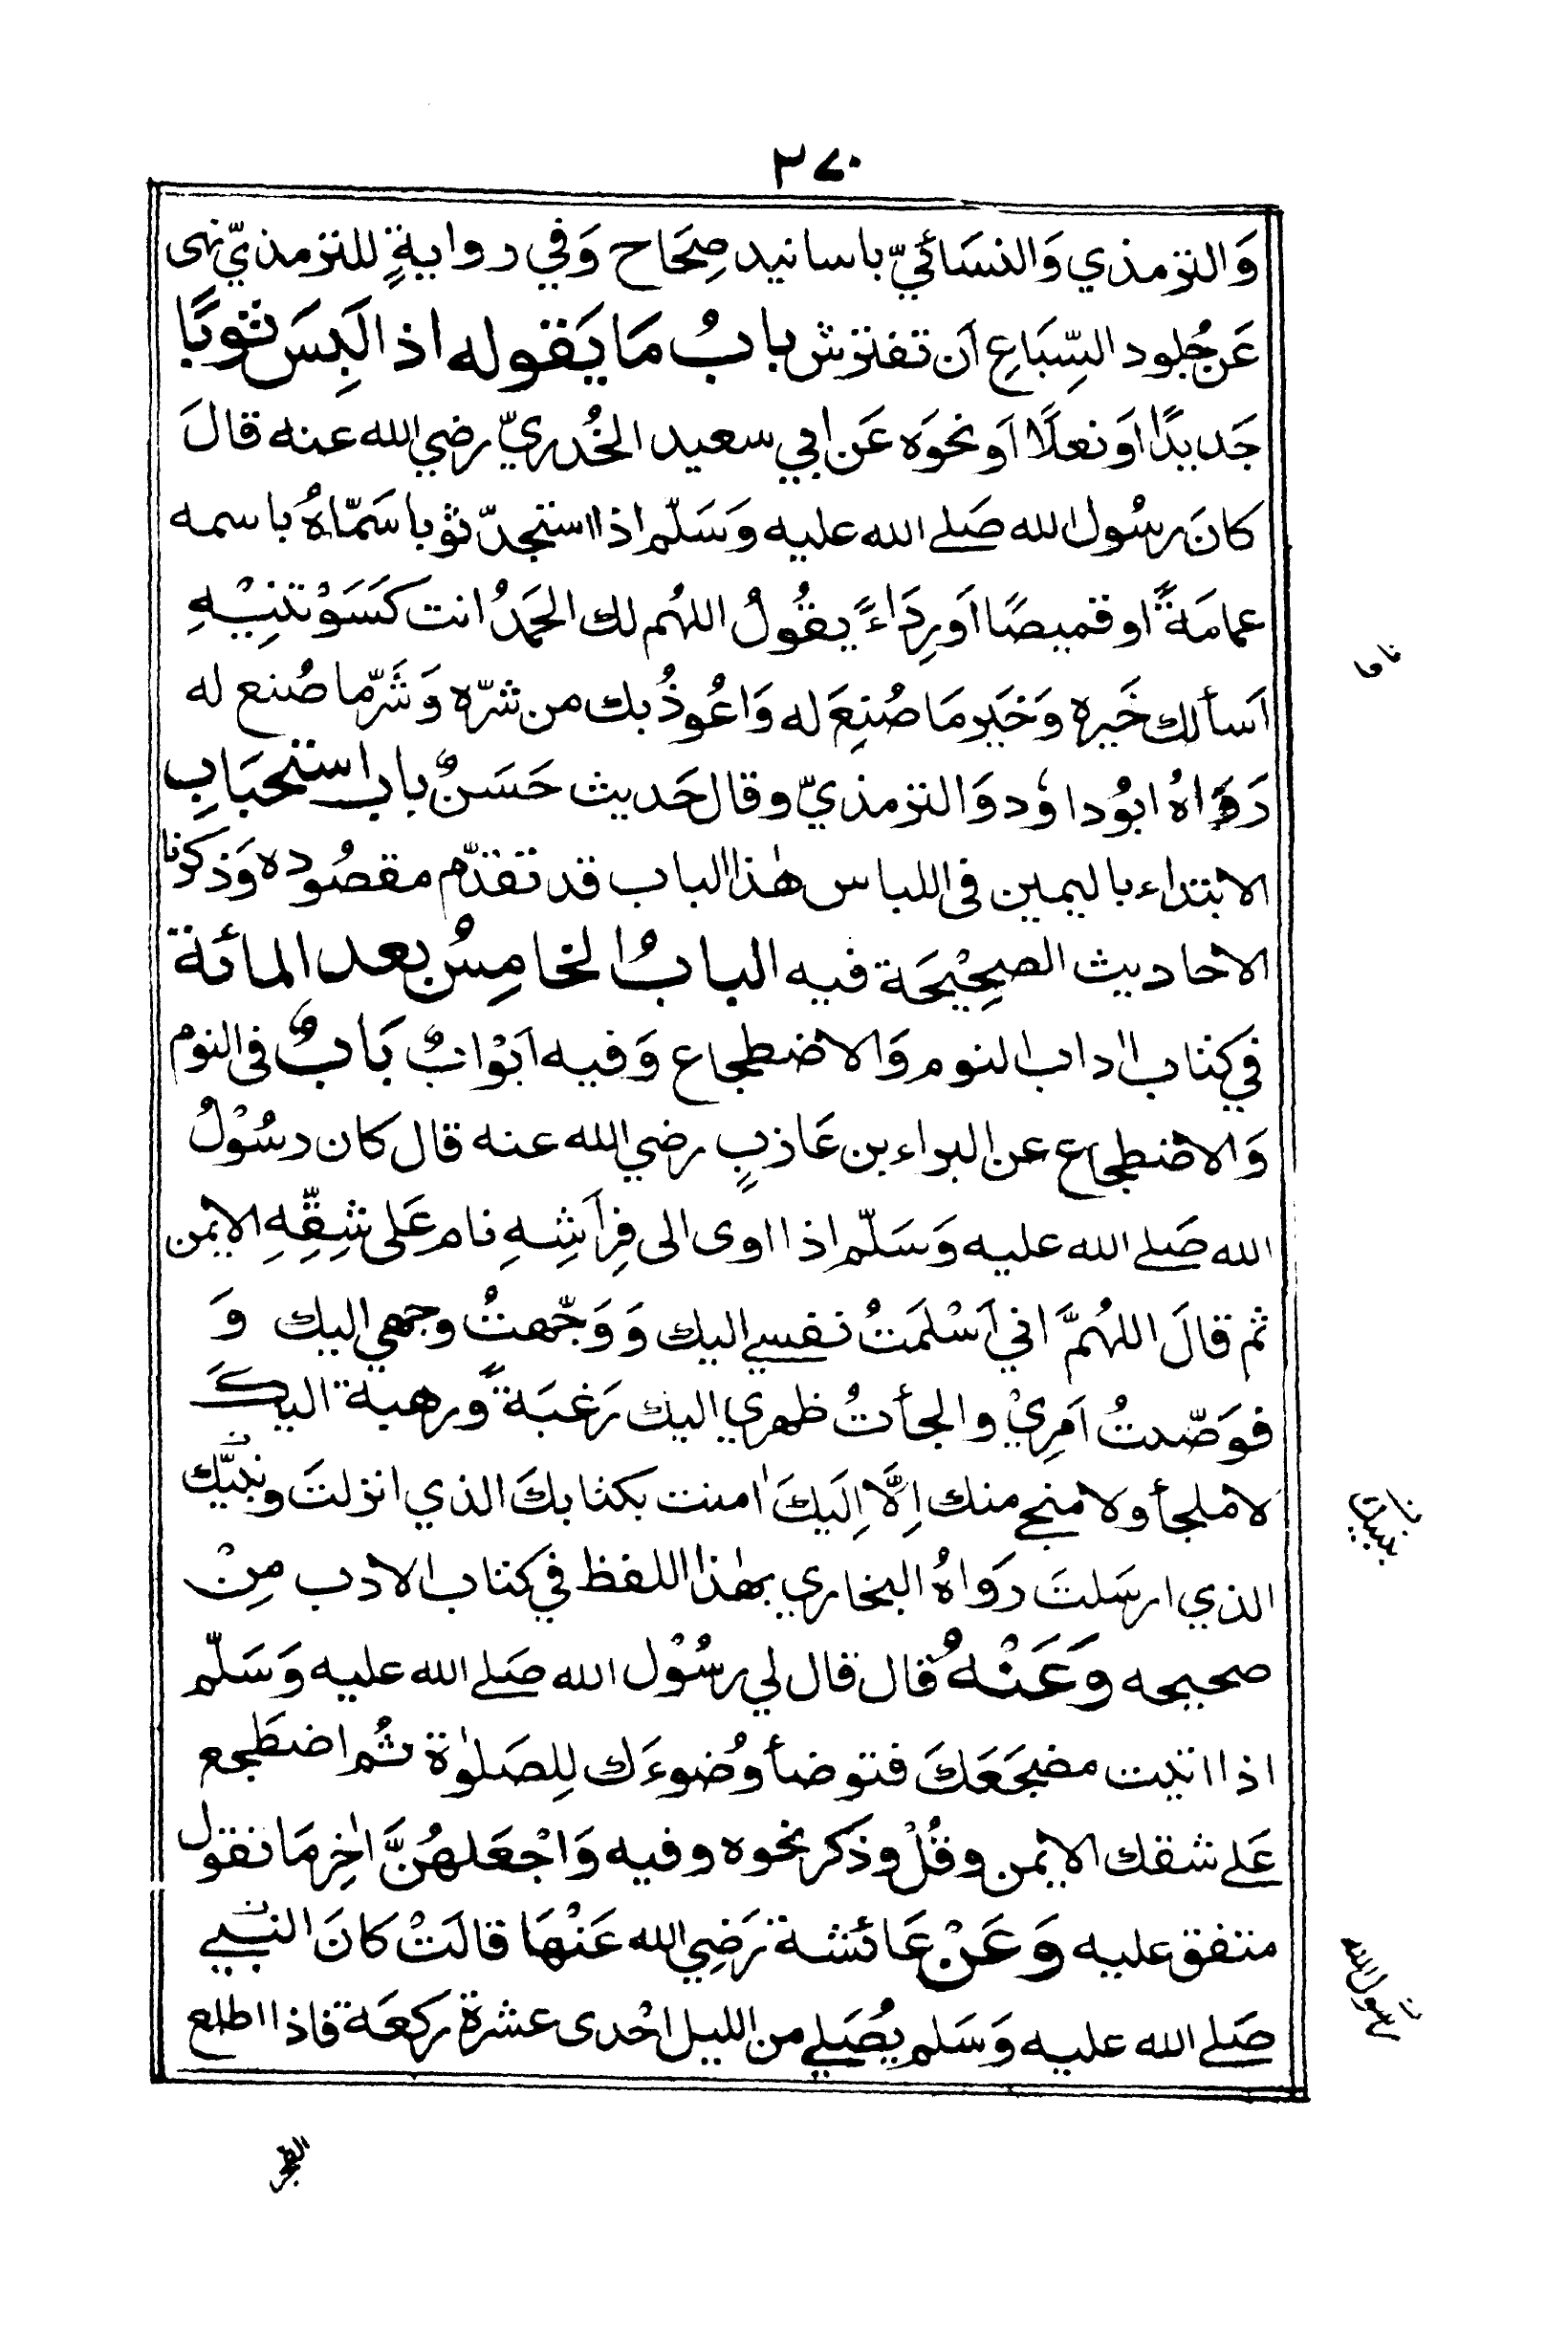 ٢٧٠
وَالترمذي وَالنسَائيّ باسانيد صِحَاح وَفي روايةٍ للترمذيّ نهى
عَن جُلود السِّبَاعِ اَن تفترش بابُ مَا يَقوله اذا لَبِسَ ثوبًا
جَديدًا اوَ نعلًا اَو نحوَه عَن ابي سعيد الخُدريّ رضي الله عنه قالَ
كانَ رسُول الله صَلے الله عليه وَسَلّم اذا استجدّ ثوبا سَمّاهُ باسمه
عمامَةً او قميصًا اَو رِدَاءً يقُولُ اللهُم لك الحَمدُ انت كَسَوْتنِيْهِ
اَسألك خَيره وَخَير مَا صُنِعَ له وَاعُوذُ بك من شرّه وَشَرّ ما صُنع له
رَوَاهُ ابوُ داوٗد وَالترمذيّ وقال حَديث حَسَنٌ باب استحبَابِ
الابتداء باليمين فى اللباس هٰذا الباب قد تقدّم مقصُوده وَذكرنا
الاحاديث الصحِيْحَة فيه البابُ الخامِسُ بعد المائة
في كتاب اداب النوم وَالاضطجاع وَفيه ابَوْابٌ بَابٌ فى النوم
وَالاضطجاع عن البراء بن عَازبٍ رضي الله عنه قال كان رسُوْلُ
الله صَلے الله عليه وَسَلّم اذا اوى الى فِرَاشِهِ نام عَلى شِقِّهِ الايمن
ثم قالَ اللهُمَّ اني اَسْلَمَتُ نفسے اليك وَوَجّهتُ وجهي اليك وَ
فوَضّتُ اَمرِيْ والجأتُ ظهري اليك رَغبَةً ورهبة اليكَ
لا ملجأ ولا منجے منك اِلَّا اِلَيكَ اٰمنت بكتابكَ الذي انزلتَ ونبيّك
الذي ارسَلتَ رَوَاهُ البخاري بهٰذا اللفظ في كتاب الادب مِنْ
صحيحه وَعَنْهُ قال قال لي رسُوْل الله صَلے الله عليه وَسَلّم
اذا اتيت مضجَعَكَ فتوضأ وُضوءَك لِلصَلوٰة ثُم اضطَجع
عَلے شقك الايمن وقُلْ وذكر نحوه وفيه وَاجْعَلهُنَّ اٰخِر مَا تقول
متفق عليه وَعَنْ عَائشة رَضِي الله عَنْهَا قالَتْ كانَ النبيے
صَلے الله عليه وَسَلم يُصَلے من الليل احْدى عشرة ركعَة فاذا اطلع
بنبيك
رسول الله
الفجر